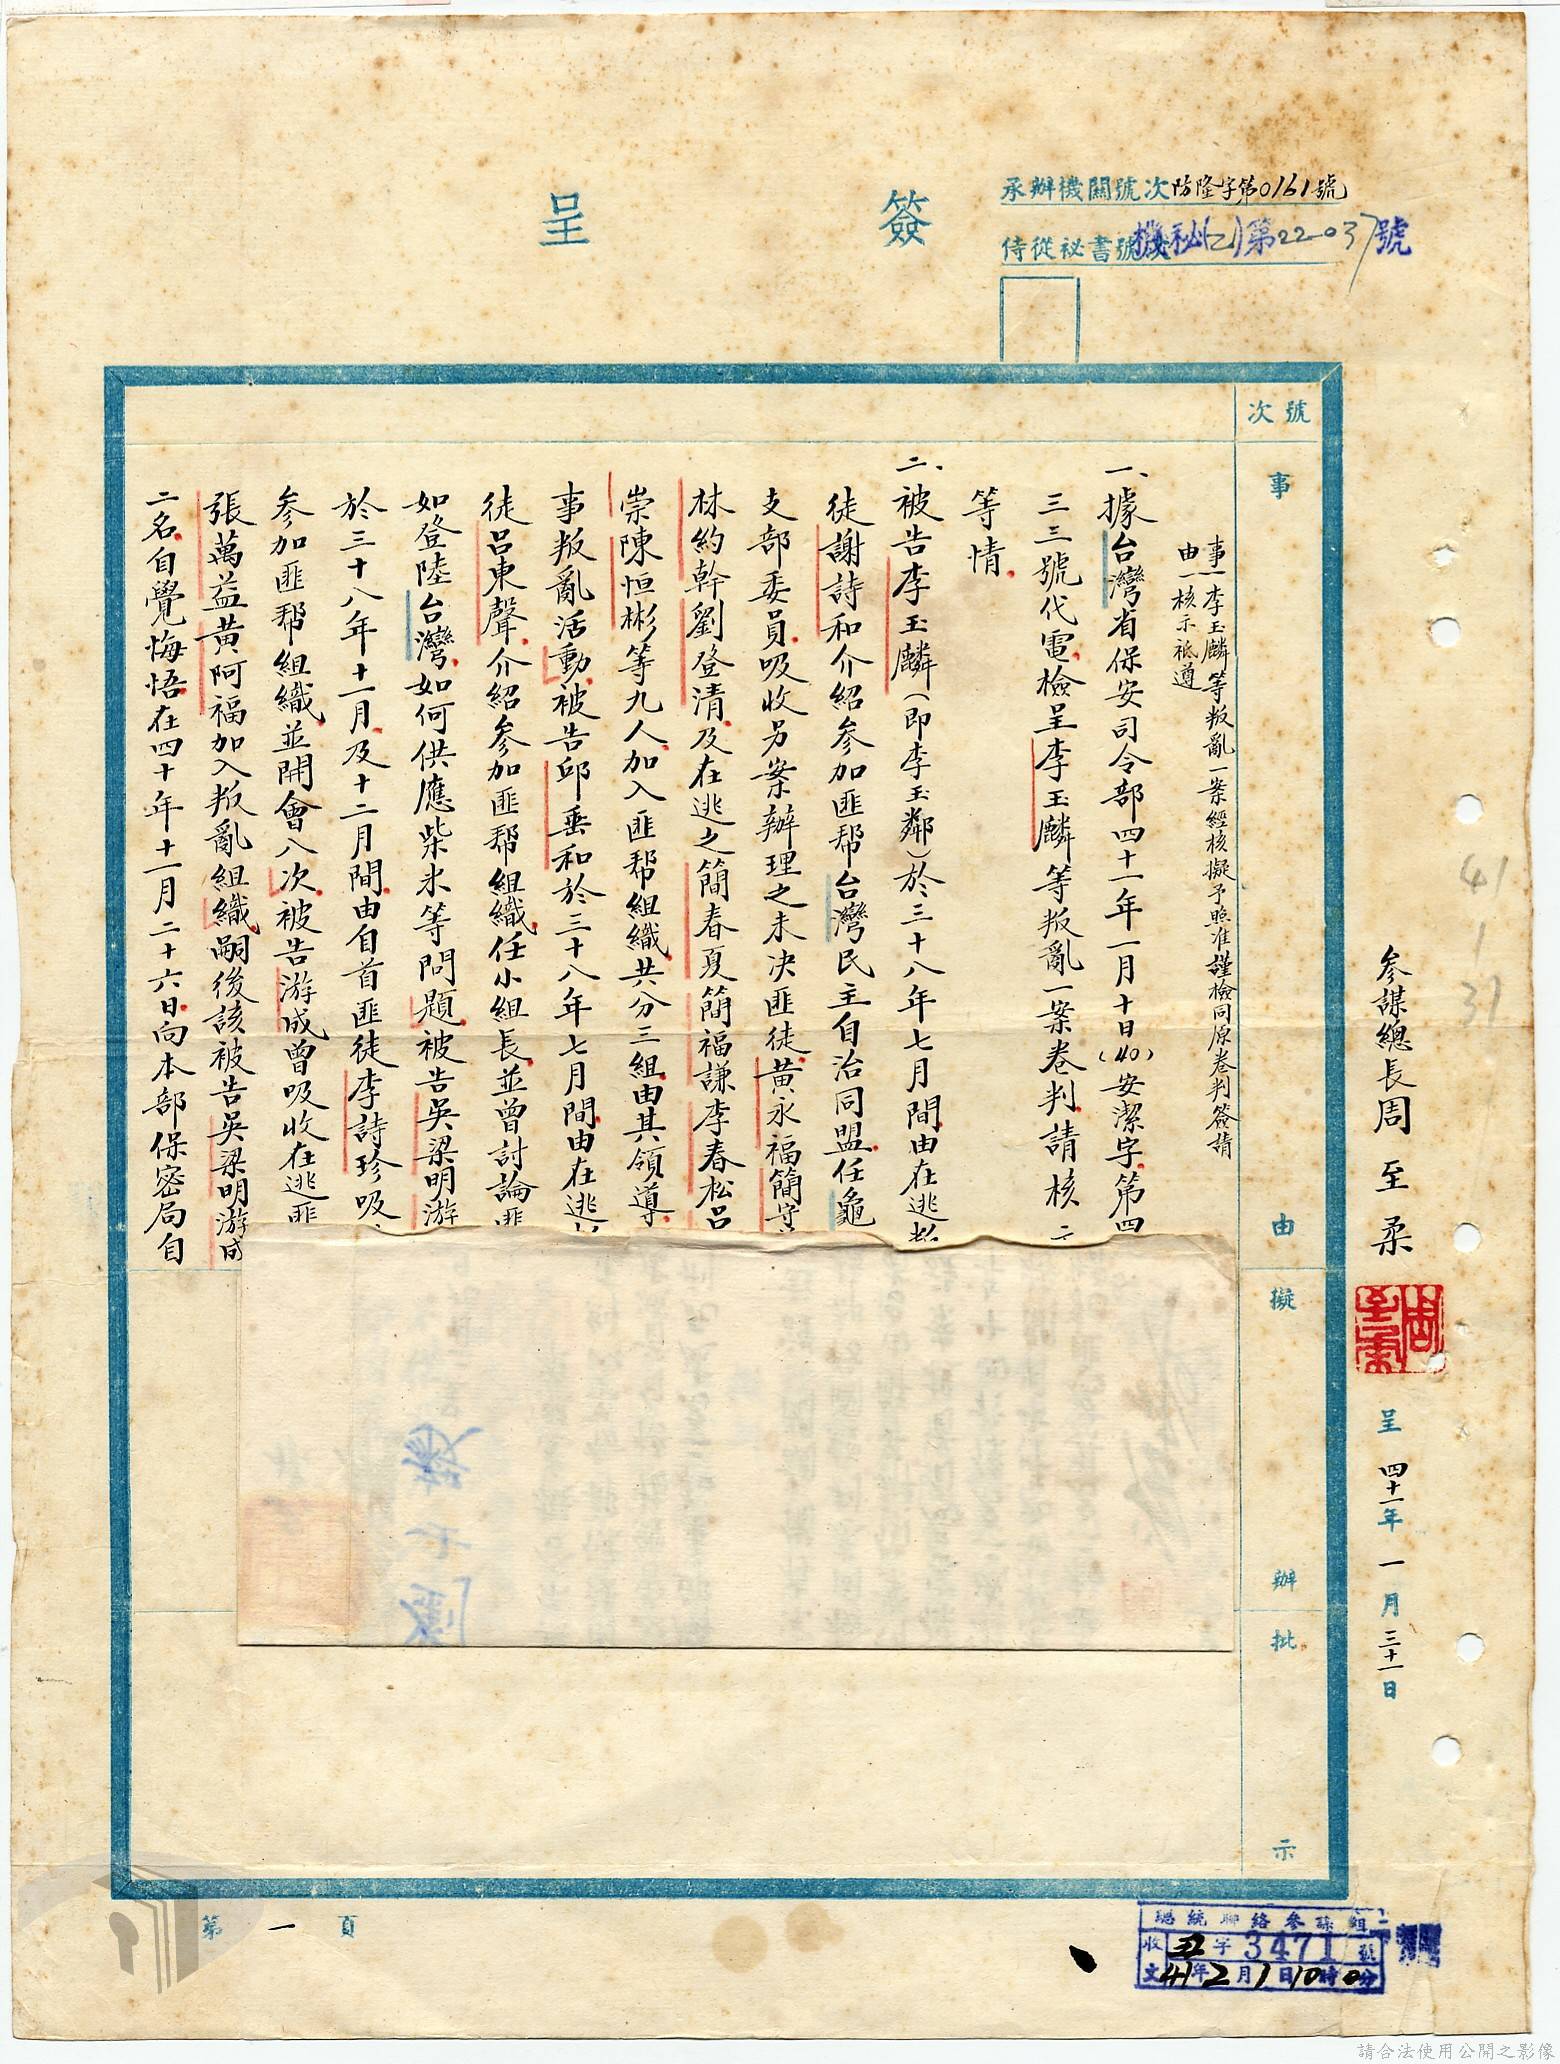 簽呈
承辦機關號次防隆字第0161號
侍從祕書號次機秘(乙)第22-037號
參謀總長周至柔
周至柔
呈 四十一年一月三十一日
41
1
31
號次
事由
擬辦
批示
事一李玉麟等叛亂一案經核擬予照准謹檢同原卷判簽請
由一核示祗遵
一、據台灣省保安司令部四十一年一月十日(40)安潔字第四
三三號代電檢呈李玉麟等叛亂一案卷判請核
等情
二、被告李玉麟(即李玉鄰)於三十八年七月間由在逃
徒謝詩和介紹參加匪帮台灣民主自治同盟任龜
支部委員吸收另案辦理之未決匪徒黃永福簡守
林約幹劉登清及在逃之簡春夏簡福謙李春松呂
崇陳恒彬等九人加入匪帮組織共分三組由其領導
事叛亂活動被告邱垂和於三十八年七月間由在逃
徒呂東聲介紹參加匪帮組織任小組長並曾討論匪
如登陸台灣如何供應柴米等問題被告吳梁明游
於三十八年十一月及十二月間由自首匪徒李詩珍吸
參加匪帮組織並開會八次被告游成曾吸收在逃匪
張萬益黃阿福加入叛亂組織嗣後該被告吳梁明游成
二名自覺悔悟在四十年十一月二十六日向本部保密局自
第一頁
總統聯絡參謀組
收丑字3471號
文41年2月1日10時0分
請合法使用公開之影像